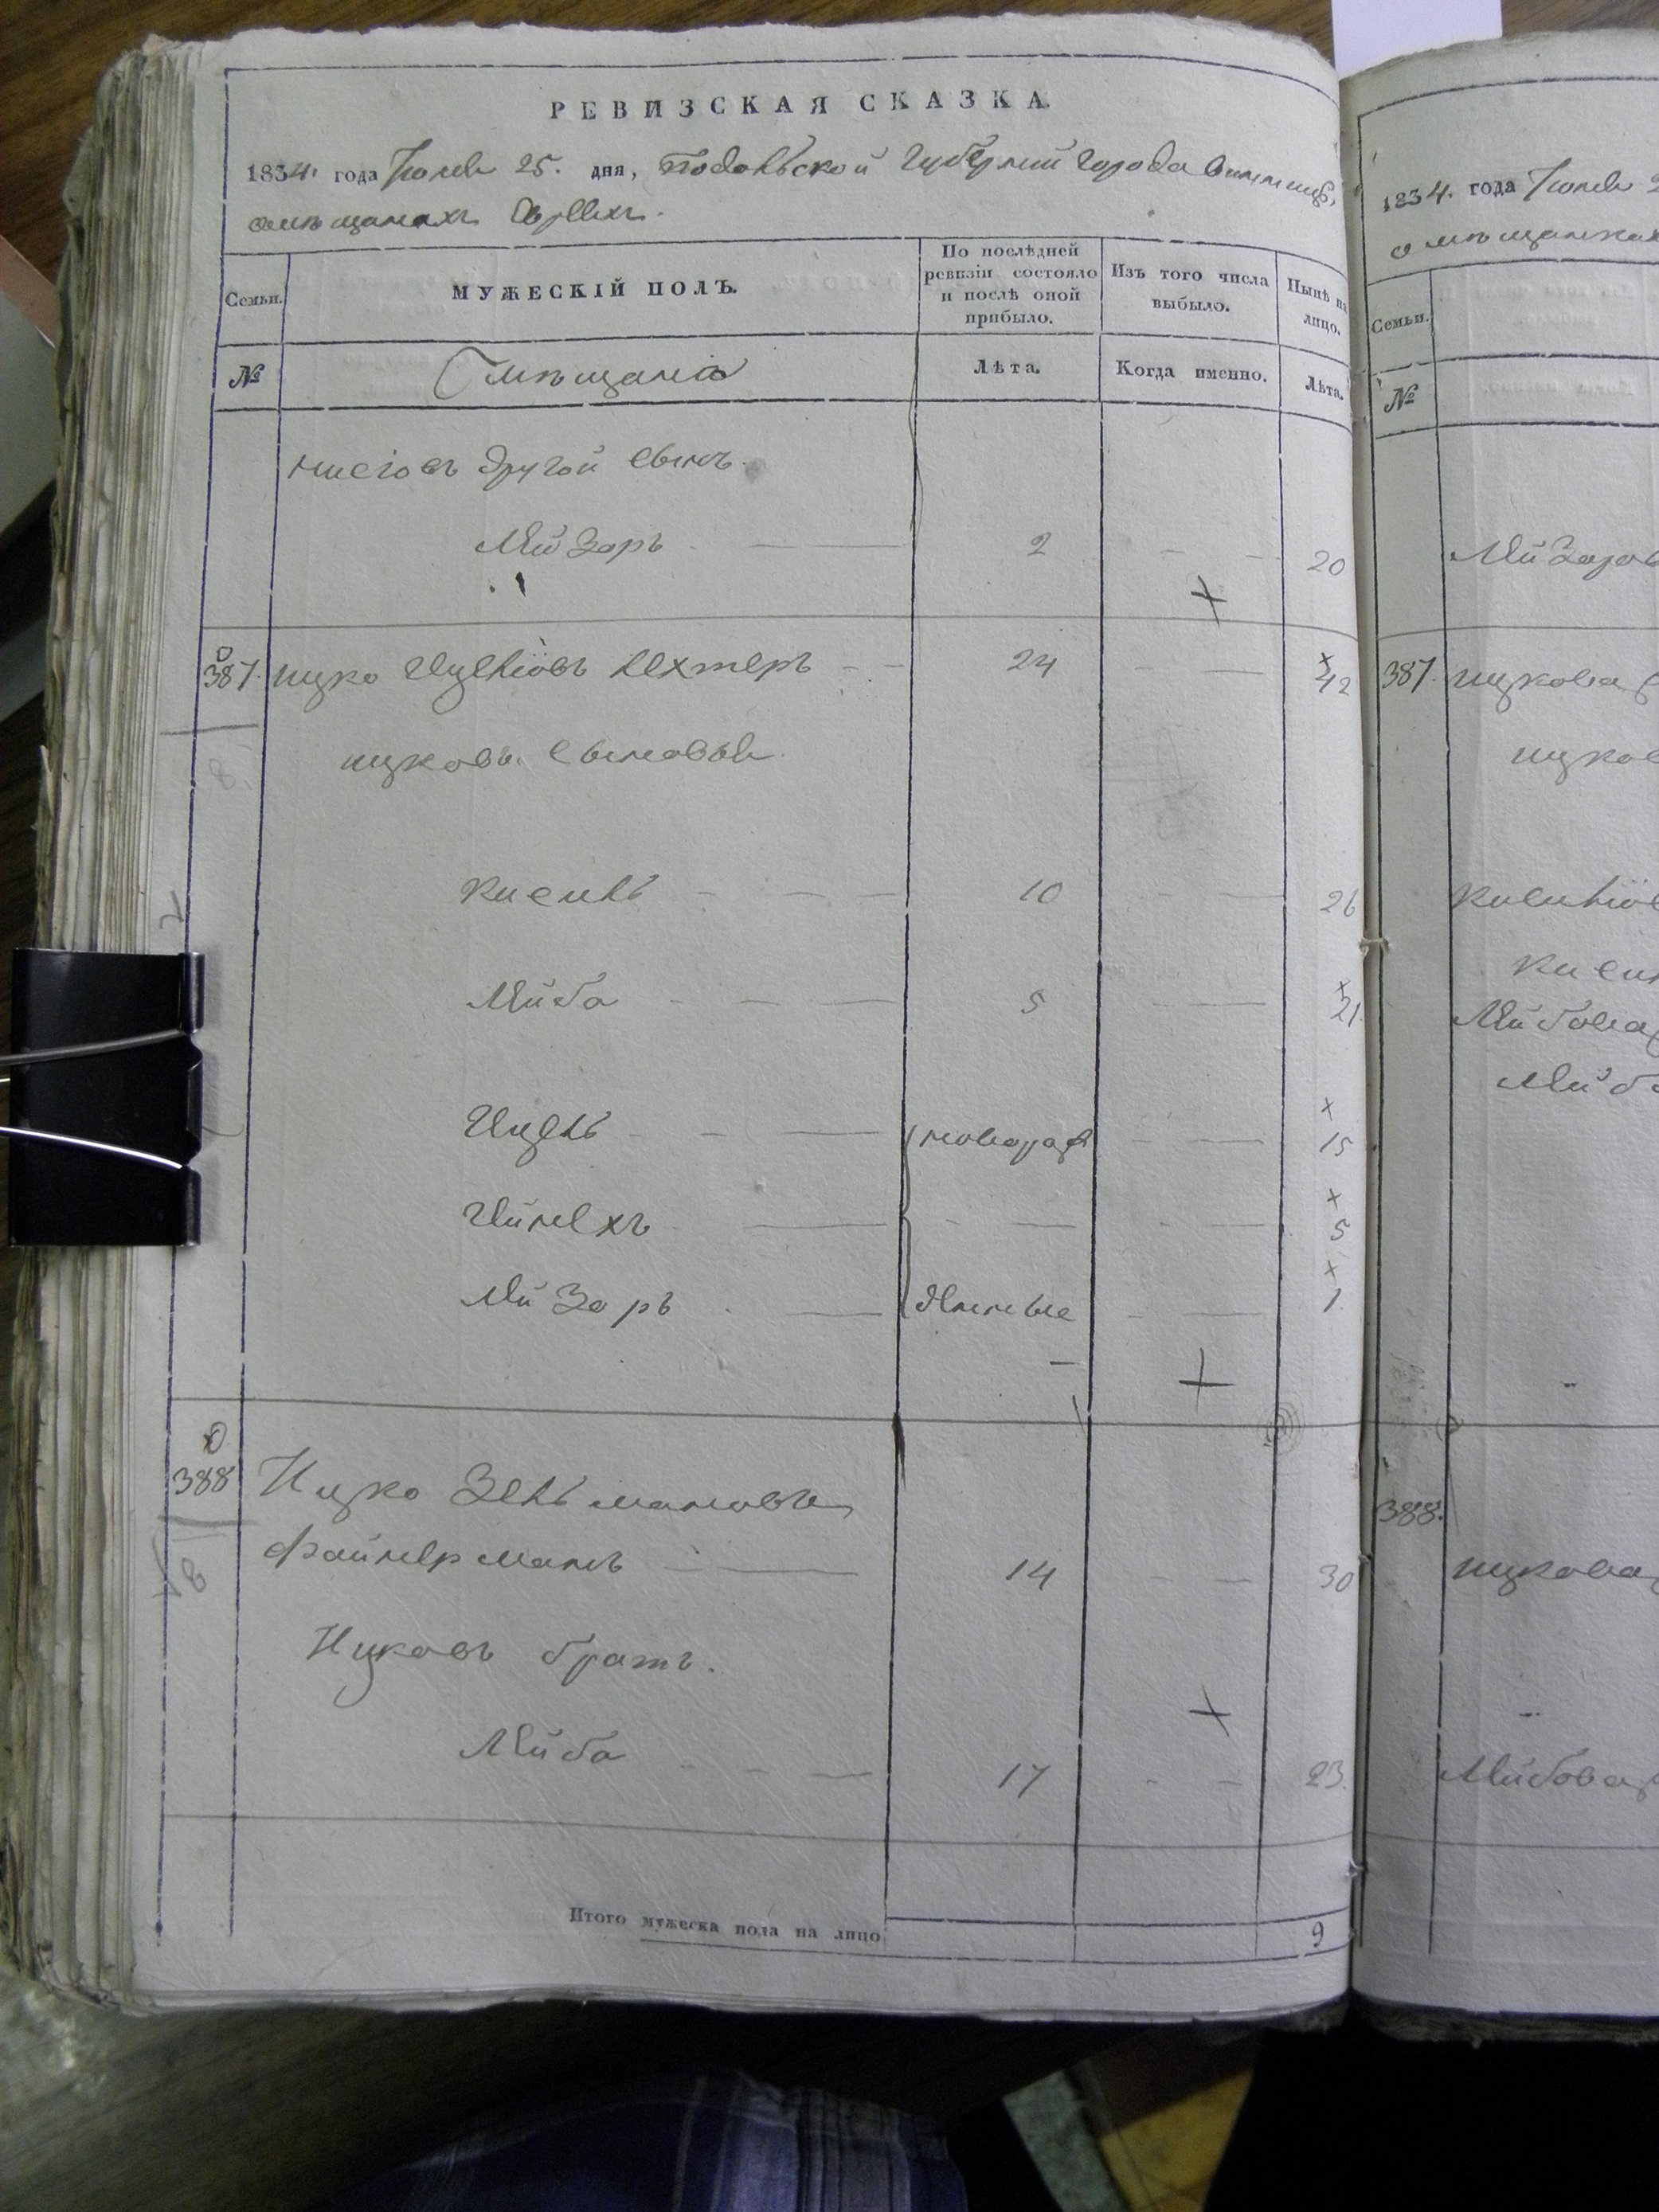 РЕВИЗСКАЯ СКАЗКА.
1834. года Июля 25. дня, Подольской Губернии города Винницы,
о мѣщанахъ Евреяхъ.
Семьи.
МУЖЕСКІЙ ПОЛЪ.
По послѣдней ревизіи состояло и послѣ оной прибыло.
Изъ того числа выбыло.
Нынѣ на лицо.
№
Мѣщане
Лѣта.
Когда именно.
Лѣта.
другой сынъ.
Лейзоръ 2 20
387. Ицко 24 42
Ицковы сыновья
Кисиль 10 26
Лейба 5 21.
новорож 15
5
Лейзоръ денные 1.
388 Ицко Зельмановъ
Файнерманъ 14 30
Ицковъ братъ.
Лейба 17 23.
Итого мужеска пола на лицо 9
1834. года Июля 2
о мѣщанках
Семьи.
№
Лейзоров
387. Ицкова
Ицков
Лейбова
Лейб
388.
Ицкова
Лейбова